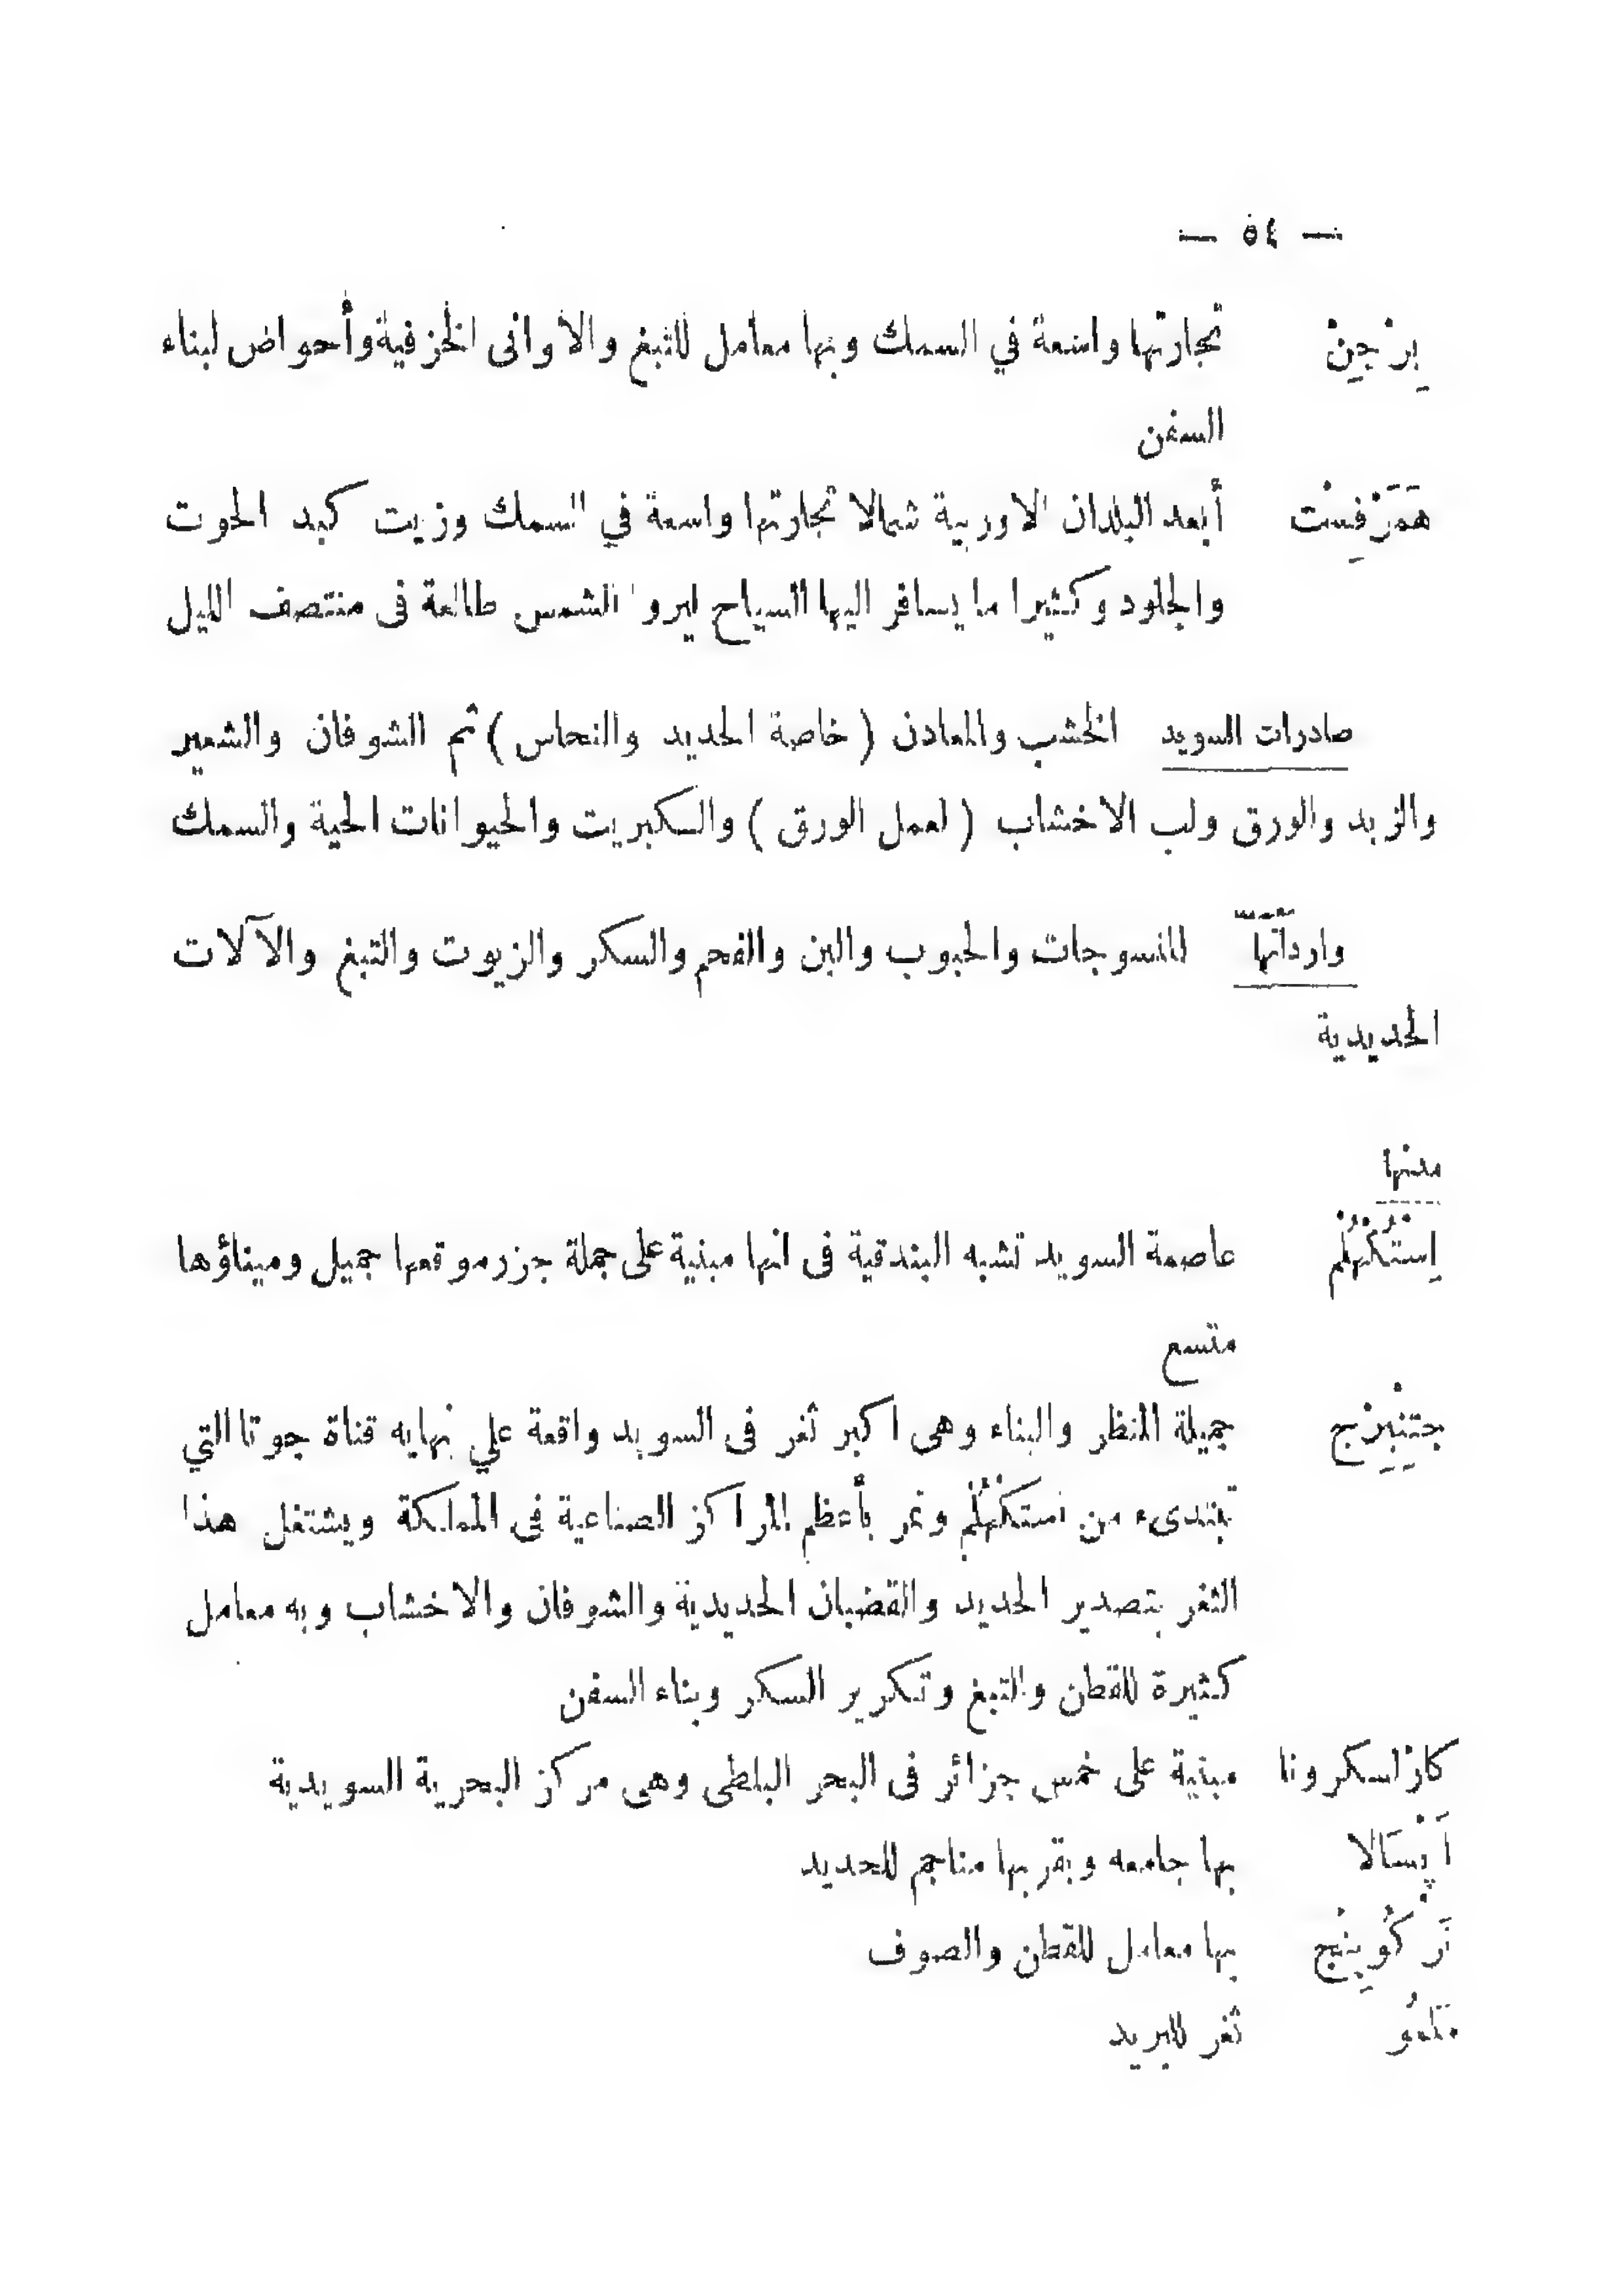 — ٥٤ —
بِرْجِنْ تجارتها واسعة في السمك وبها معامل للتبغ والاوانى الخزفية وأحواض لبناء
السفن
هَمَرْفِسْت أبعد البلدان الاوربية شمالا تجارتها واسعة في السمك وزيت كبد الحوت
والجلود وكثيرا ما يسافر اليها السياح ليروا الشمس طالعة فى منتصف الليل
صادرات السويد الخشب والمعادن ( خاصة الحديد والنحاس ) ثم الشوفان والشعير
والزبد والورق ولب الاخشاب ( لعمل الورق ) والكبريت والحيوانات الحية والسمك
وارداتها المنسوجات والحبوب والبن والفحم والسكر والزيوت والتبغ والآلات
الحديدية
مدنها
اِسْتُكْهُلْم عاصمة السويد تشبه البندقية فى انها مبنية على جملة جزر موقعها جميل وميناؤها
متسع
جتِنْبِرْج جميلة المنظر والبناء وهى اكبر ثغر فى السويد واقعة علي نهايه قناة جوتا التي
تبتدىء من استكْهُلْم وتمر بأعظم المراكز الصناعية فى المملكة ويشتغل هذا
الثغر بتصدير الحديد والقضبان الحديدية والشوفان والاخشاب وبه معامل
كثيرة للقطن والتبغ وتكرير السكر وبناء السفن
كارْلسكرونا مبنية على خمس جزائر فى البحر البلطى وهى مركز البحرية السويدية
اَبْسَالا بها جامعه وبقربها مناجم للحديد
نَرْكُوبِنْج بها معامل للقطن والصوف
ثغر للبريد